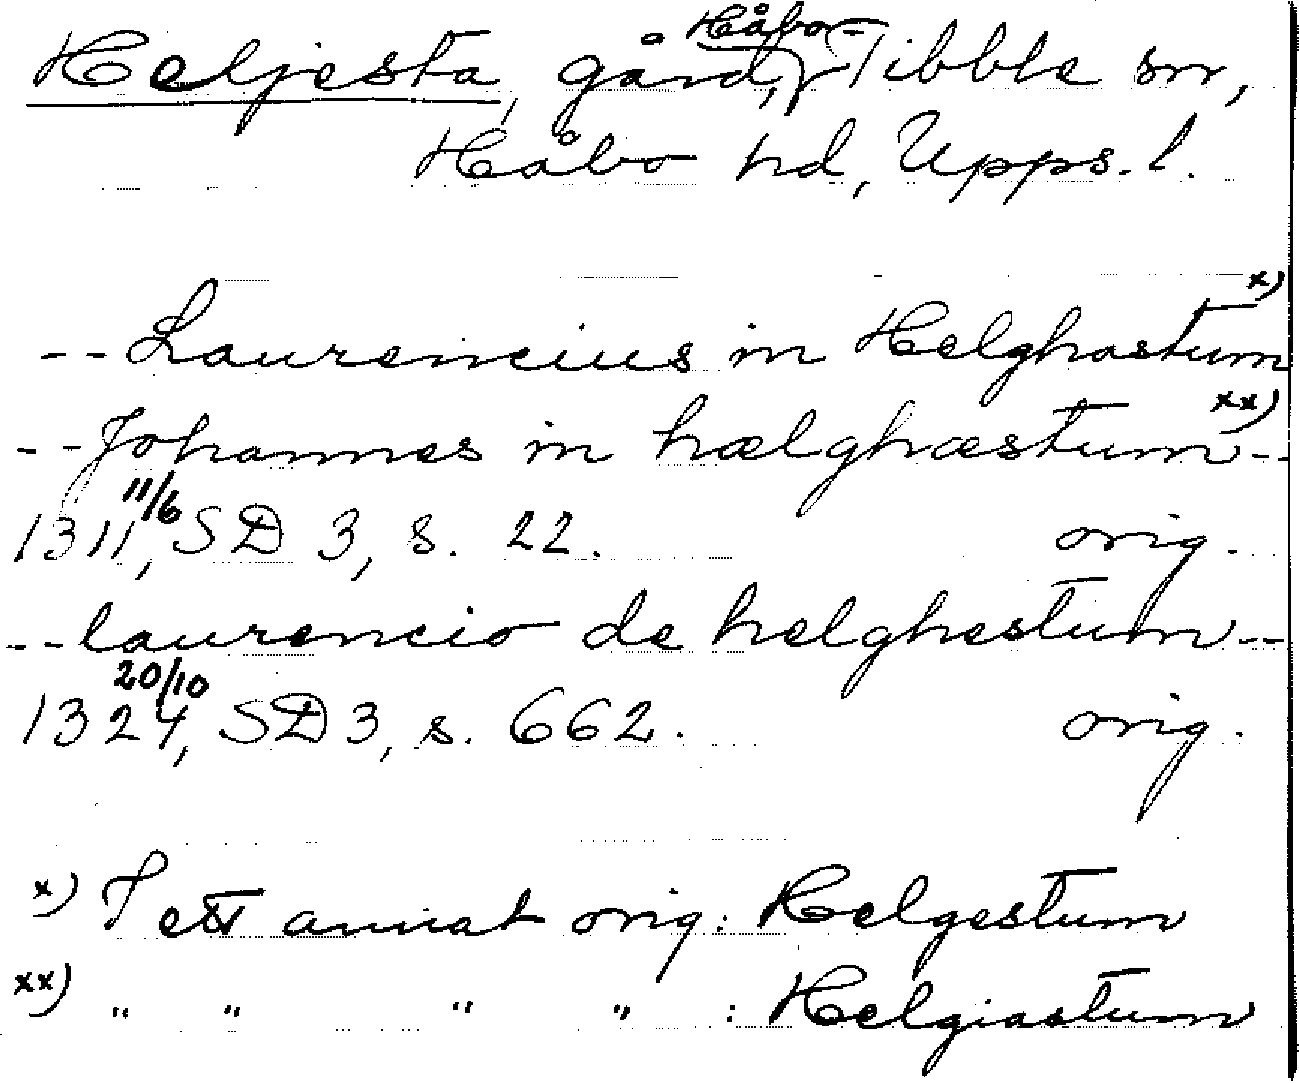 Heljesta, gård, Håbo-Tibble sn,
Håbo hd, Upps. l.
-- Laurencius in Helghastum x)
-- Johannes in hælghæstum xx) --
1311 11/6, SD 3, s. 22. orig.
-- laurencio de helghestum --
1324 20/10, SD 3, s. 662. orig.
x) I ett annat orig: Helgestum
xx) " " " " : Helgiastum